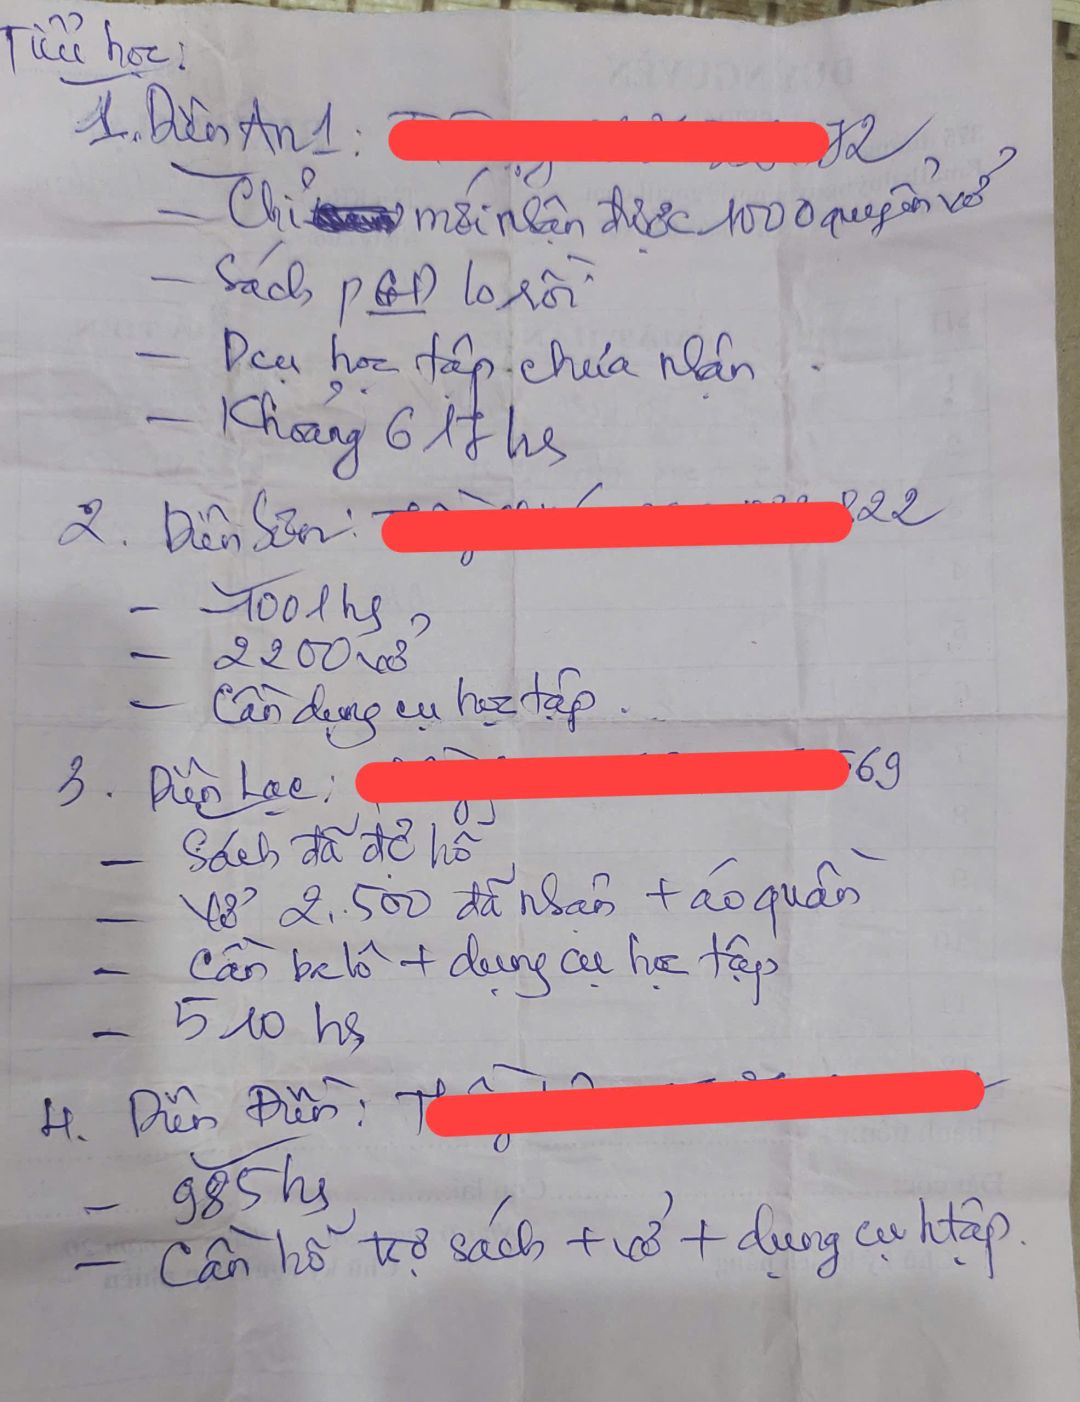 Tiểu học:
1. Diên An 1: 72
- Chỉ mới nhận được 1000 quyển vở
- Sách PGD lo rồi
- Dcụ học tập chưa nhận
- Khoảng 617 hs
2. Diên Sơn: 822
- 1001 hs
- 2200 vở
- Cần dụng cụ học tập.
3. Diên Lạc: 569
- Sách đã đc hỗ
- Vở 2.500 đã nhận + áo quần
- Cần balô + dụng cụ học tập
- 510 hs
4. Diên Điền: T
- 985 hs
- Cần hỗ trợ sách + vở + dụng cụ htập.